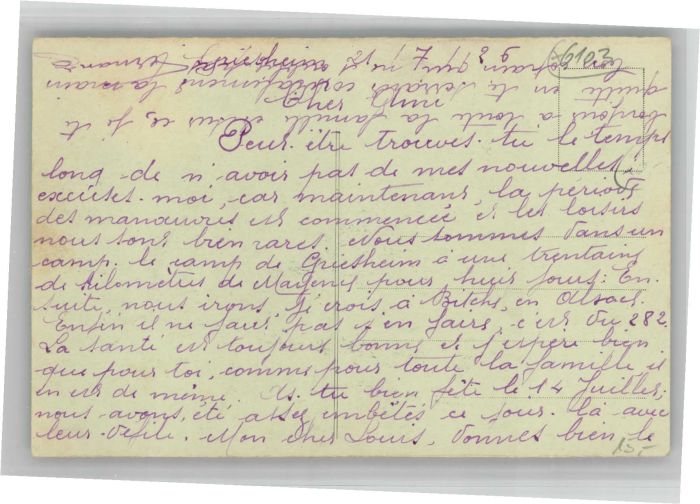 Cher Ami
Peut-être trouves-tu le temps
long de n'avoir pas de mes nouvelles,
excuses-moi, car maintenant, la période
des manœuvres est commencée et les loisirs
nous sont bien rares. Nous sommes dans un
camp. le camp de Griesheim à une trentaine
de kilomètres de Mayence pour huit jours: En-
suite, nous irons, je crois à Bitche, en Alsace.
Enfin il ne faut pas s'en faire, c'est du 282.
La santé est toujours bonne et j'espère bien
que pour toi, comme pour toute la famille, il
en est de même. As-tu bien fêté le 14 Juillet;
nous avons été assez embêtés ce jour-là avec
leur défilé. Mon cher Louis, donnes bien le
bonjour à toute la famille et je te
quitte en te serrant cordialement la main
6103
15,-